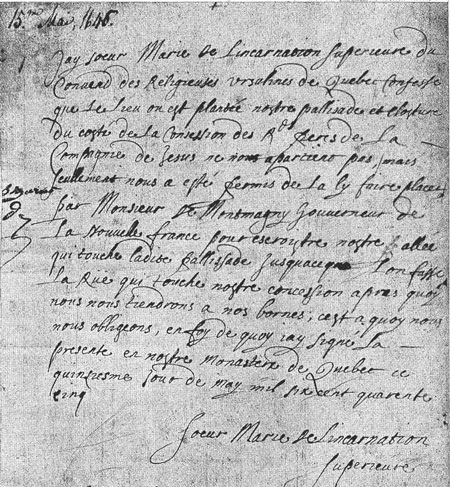 15.me Mai, 1645.
Jay soeur Marie de Lincarnation superieure du
Convend des Religieuses Ursulines de Quebec Confesse
que Le Lieu ou est plantée nostre pallisade et closture
du costé de La Consession des Rds peres de La
Compagnie de Jesus ne nous apartient pas, mais
seullement nous a esté permis de La ly faire placer
par Monsieur de Montmagny Gouverneur de
La Nouvelle france pour escroistre nostre allee
qui touche ladite pallissade Jusquaceque Lon fisse
La Rue qui touche nostre concession apres quoy
nous nous tiendrons a nos bornes, cest a quoy nous
nous obligeons, en foy de quoy iay signe La
presente en nostre Monastere de Quebec ce
quinsiesme Jour de may mil six cent quarente
cinq
Soeur Marie de Lincarnation
superieure